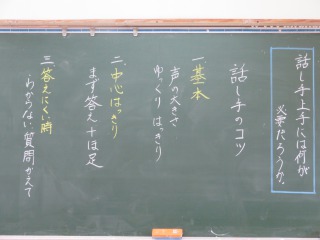 話し手上手には何が
必要だろうか。
話し手のコツ
一 基本
声の大きさ
ゆっくり はっきり
二、中心はっきり
まず答え＋ほ足
三、答えにくい時
わからない質問かえて